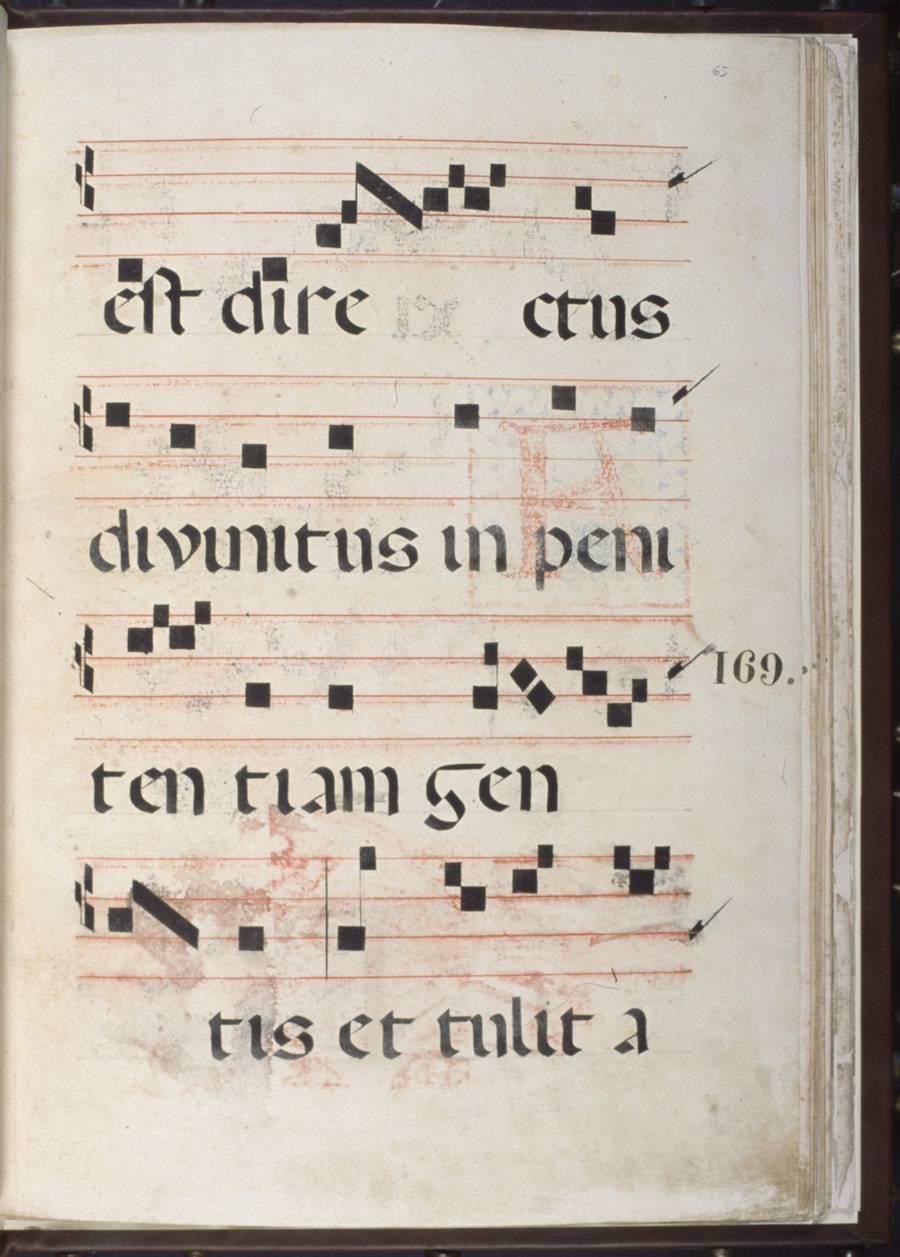 65
est dire ctus
divinitus in peni
169.
ten tiam gen
tis et tulit a